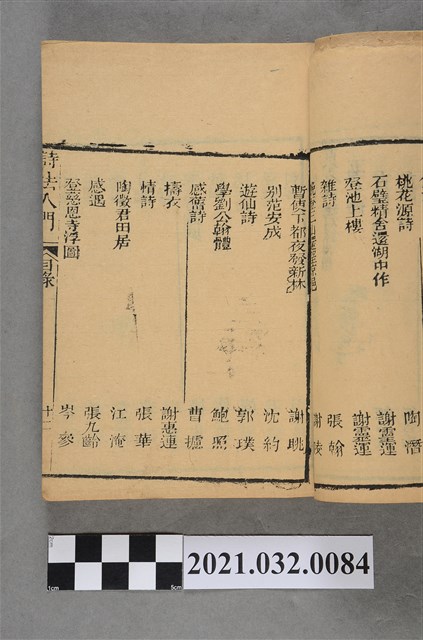 桃花源詩 陶潛
石壁精舍還湖中作 謝靈運
登池上樓 謝靈運
雜詩 張翰
暫使下都夜發新林 謝眺
別范安成 沈約
遊仙詩 郭璞
學劉公幹體 鮑照
感舊詩 曹攄
擣衣 謝惠連
情詩 張華
陶徵君田居 江淹
感遇 張九齡
登慈恩寺浮圖 岑參
詩法入門 目錄 十二
2cm
1cm
5cm
2021.032.0084